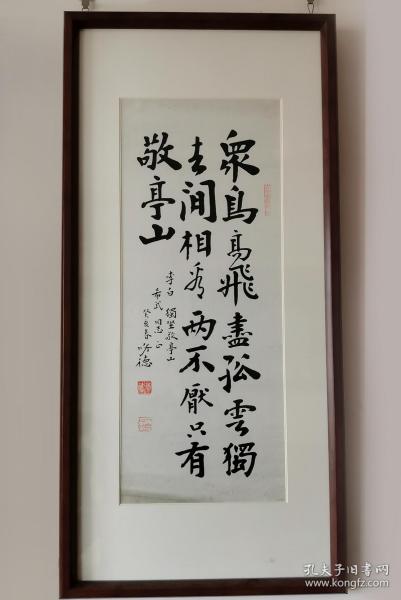 衆鳥高飛盡孤雲獨
去閒相看两不厭只有
敬亭山
李白 獨坐敬亭山
同志正
癸亥春 德
孔夫子旧书网
www.kongfz.com